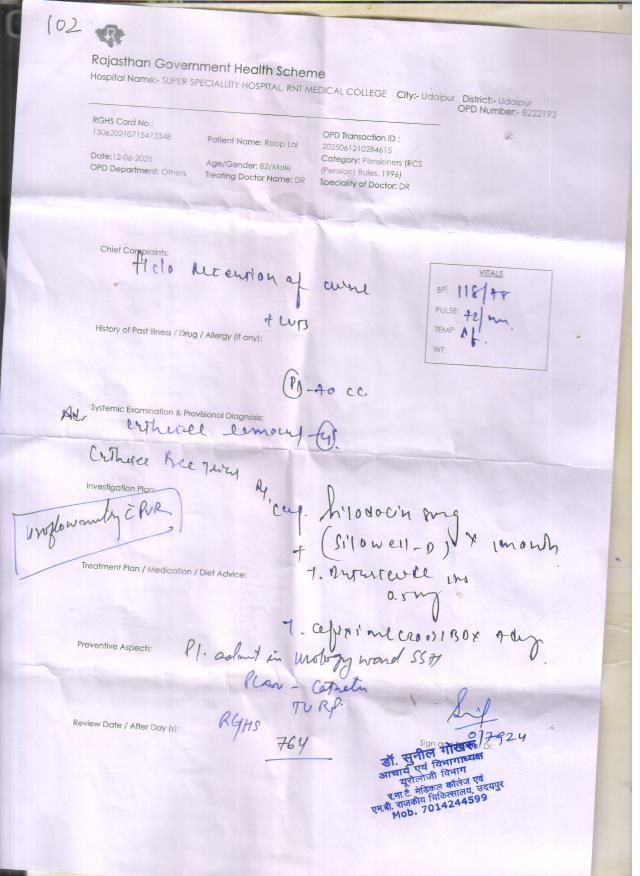 102
Rajasthan Government Health Scheme
Hospital Name:- SUPER SPECIALLITY HOSPITAL, RNT MEDICAL COLLEGE City:- Udaipur District:- Udaipur
OPD Number:- 8222193
RGHS Card No.:
130620210715473348
Patient Name: Roop Lal
OPD Transaction ID :
2025061210284615
Date:12-06-2025
Age/Gender: 82/Male
Category: Pensioners (RCS (Pension) Rules, 1996)
OPD Department: Others
Treating Doctor Name: DR
Speciality of Doctor: DR
Chief Complaints:
H/o Retention of urine
VITALS
BP: 118/78
PULSE: 72/mn.
TEMP: Af.
WT:
History of Past Illness / Drug / Allergy (if any):
Systemic Examination & Provisional Diagnosis:
Adv.
Investigation Plan:
Uroflowmetry c̄ PVR
Cap. Silodocin 8mg
+ (Silowell-D) x 1 month
Treatment Plan / Medication / Diet Advice:
0.5mg
Preventive Aspects:
Pl. admit in urology ward SSH
PLAN -
TURP.
Review Date / After Day (s):
RGHS
764
Sign
Dr.
07924
डॉ. सुनील गोखरू
आचार्य एवं विभागाध्यक्ष
यूरोलोजी विभाग
र.ना.टै. मेडिकल कॉलेज एवं
एम.बी. राजकीय चिकित्सालय, उदयपुर
Mob. 7014244599